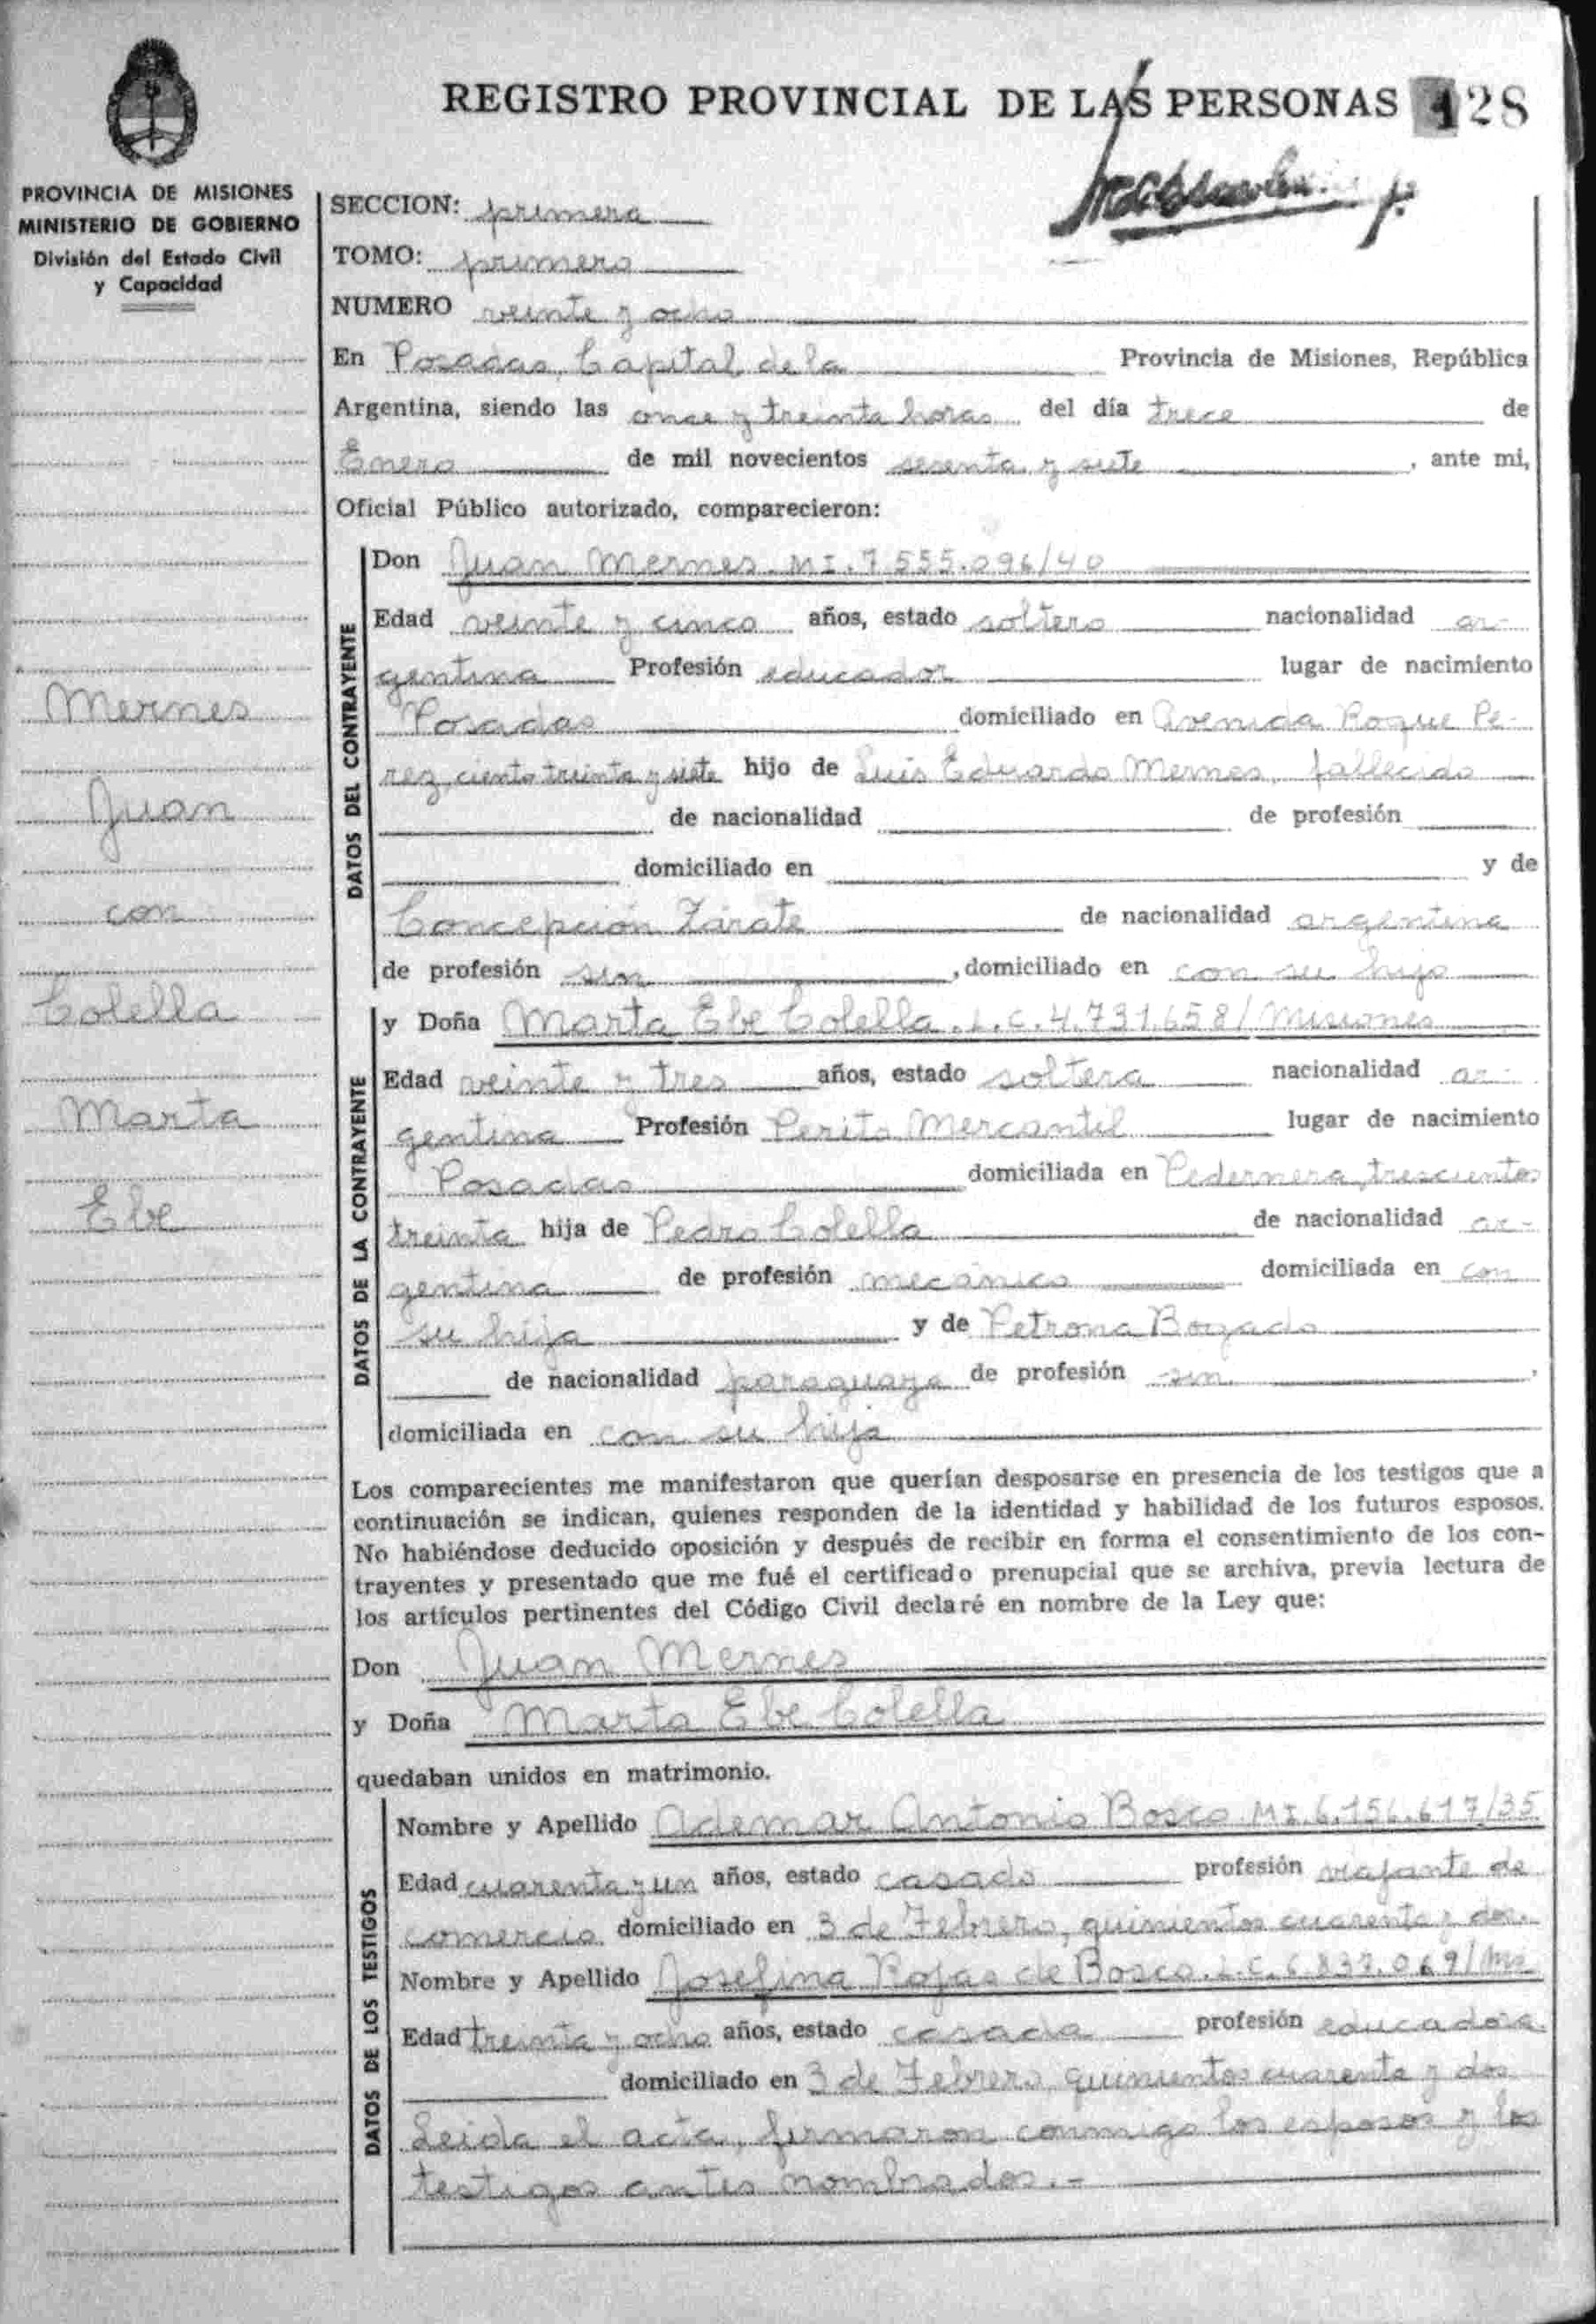 REGISTRO PROVINCIAL DE LAS PERSONAS 128
PROVINCIA DE MISIONES
MINISTERIO DE GOBIERNO
División del Estado Civil
y Capacidad
Mernes
Juan
con
Colella
Marta
Ebe
SECCION: primera
TOMO: primero
NUMERO veinte y ocho
En Posadas, Capital de la Provincia de Misiones, República
Argentina, siendo las once y treinta horas del día trece de
Enero de mil novecientos sesenta y siete, ante mi,
Oficial Público autorizado, comparecieron:
DATOS DEL CONTRAYENTE
Don Juan Mernes. MI. 7.555.096/40
Edad veinte y cinco años, estado soltero nacionalidad ar-
gentina Profesión educador lugar de nacimiento
Posadas domiciliado en Avenida Roque Pé-
rez, ciento treinta y siete hijo de Luis Eduardo Mernes, fallecido
de nacionalidad de profesión
domiciliado en y de
Concepción Zárate de nacionalidad argentina
de profesión sin, domiciliado en con su hijo
DATOS DE LA CONTRAYENTE
y Doña Marta Ebe Colella. L.C. 4.731.658/Misiones
Edad veinte y tres años, estado soltera nacionalidad ar-
gentina Profesión Perito Mercantil lugar de nacimiento
Posadas domiciliada en Pedernera, trescientos
treinta hija de Pedro Colella de nacionalidad ar-
gentina de profesión mecánico domiciliada en con
su hija y de Petrona Bogado
de nacionalidad paraguaya de profesión sin,
domiciliada en con su hija
Los comparecientes me manifestaron que querían desposarse en presencia de los testigos que a
continuación se indican, quienes responden de la identidad y habilidad de los futuros esposos.
No habiéndose deducido oposición y después de recibir en forma el consentimiento de los con-
trayentes y presentado que me fué el certificado prenupcial que se archiva, previa lectura de
los artículos pertinentes del Código Civil declaré en nombre de la Ley que:
Don Juan Mernes
y Doña Marta Ebe Colella
quedaban unidos en matrimonio.
DATOS DE LOS TESTIGOS
Nombre y Apellido Ademar Antonio Bosco MI. 6.156.617/35
Edad cuarenta y un años, estado casado profesión viajante de
comercio domiciliado en 3 de Febrero, quinientos cuarenta y dos.
Nombre y Apellido Josefina Rojas de Bosco. L.C. 6.837.069/Ms
Edad treinta y ocho años, estado casada profesión educadora
domiciliado en 3 de Febrero, quinientos cuarenta y dos
Leída el acta, firmaron conmigo los esposos y los
testigos antes nombrados.-